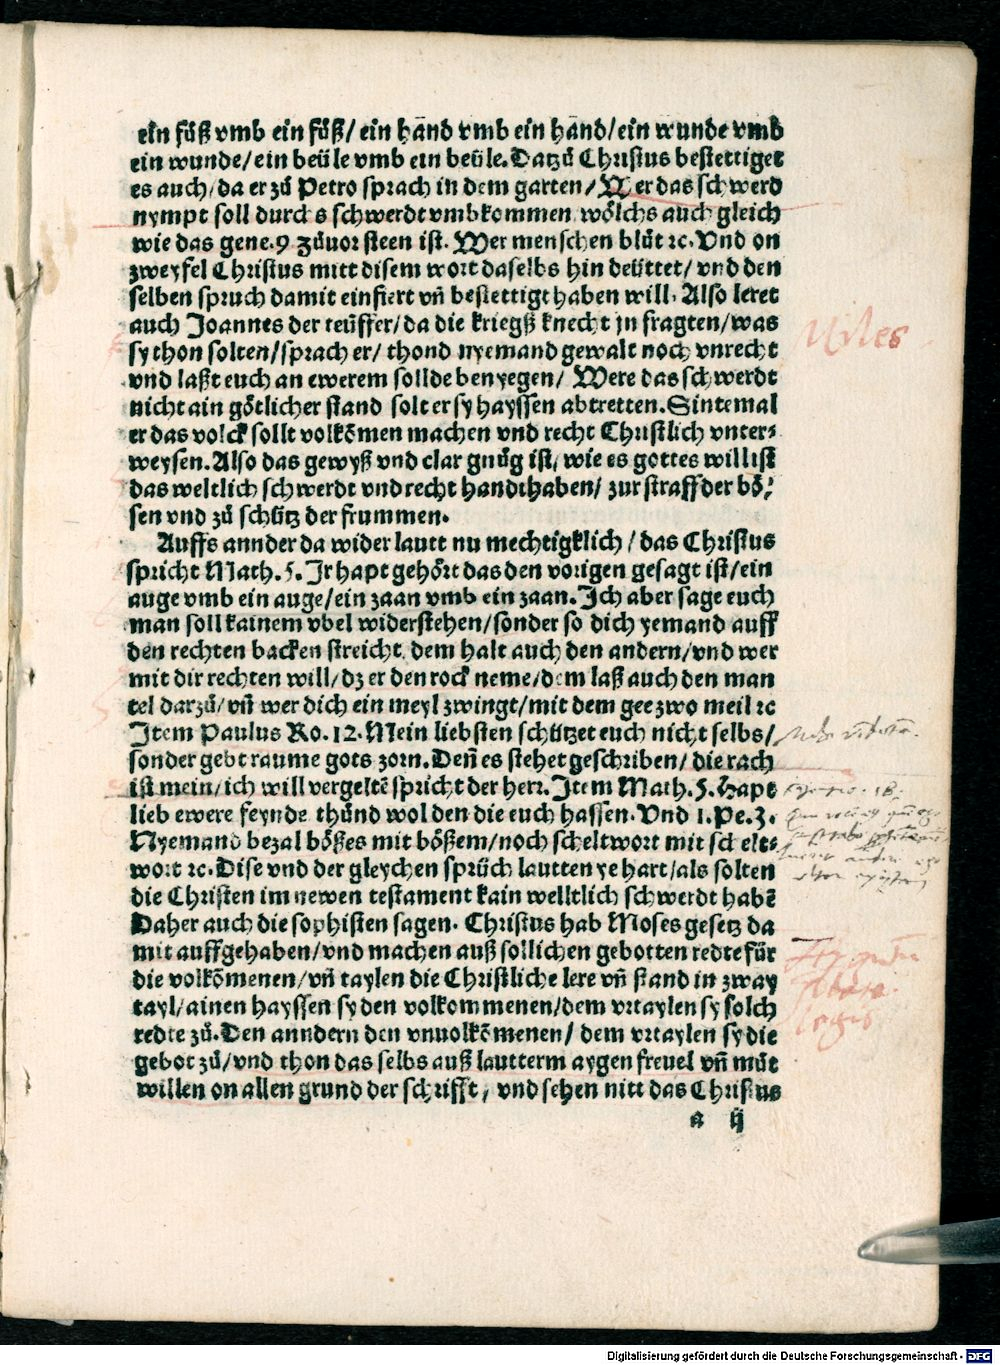 ein fůß vmb ein fůß/ ein hānd vmb ein hānd/ein wunde vmb
ein wunde/ein beüle vmb ein beüle. Datzů Christus bestettiget
es auch/ da er zů Petro sprach in dem garten/ Wer das schwerd
nympt soll durchs schwerdt vmbkommen wôlchs auch gleich
wie das gene. 9 zůuor steen ist. Wer menschen blůt ꝛc. Vnd on
zweyfel Christus mitt disem wort daselbs hin deüttet/ vnd den
selben spruch damit einfiert vñ bestettigt haben will. Also leret
auch Joannes der teüffer/ da die kriegß knecht jn fragten/was
sy thon solten/sprach er/ thond nyemand gewalt noch vnrecht
vnd laßt euch an ewerem sollde benyegen/ Were das schwerdt
nicht ain gôtlicher stand solt er sy hayssen abtretten. Sintemal
er das volck sollt volkōmen machen vnd recht Christlich vnter⸗
weysen. Also das gewyß vnd clar gnůg ist/ wie es gottes will ist
das weltlich schwerdt vnd recht handthaben/ zur straff der bô⸗
sen vnd zů schütz der frummen.
Auffs annder da wider lautt nu mechtigklich/ das Christus
spricht Math. 5. Jr hapt gehôrt das den vorigen gesagt ist/ein
auge vmb ein auge/ein zaan vmb ein zaan. Ich aber sage euch
man soll kainem vbel widerstehen/sonder so dich yemand auff
den rechten backen streicht dem halt auch den andern/vnd wer
mit dir rechten will/dz er den rock neme/dem laß auch den man
tel darzů/vñ wer dich ein meyl zwingt/mit dem gee zwo meil ꝛc
Item Paulus Ro. 12. Mein liebsten schützet euch nicht selbs/
sonder gebt raume gots zorn. Deñ es stehet geschriben/ die rach
ist mein/ich will vergeltē spricht der herr. Item Math. 5. hapt
lieb ewere feynde thůnd wol den die euch hassen. Vnd 1. Pe. 3.
Nyemand bezal bôßes mit bôßem/noch scheltwort mit schelt⸗
wort ꝛc. Dise vnd der gleychen sprüch lautten ye hart/als solten
die Christen im newen testament kain welltlich schwerdt habē
Daher auch die sophisten sagen. Christus hab Moses gesetz da
mit auffgehaben/vnd machen auß sollichen gebotten redte für
die volkōmenen/vñ taylen die Christliche lere vñ stand in zway
tayl/ainen hayssen sy den volkommenen/dem vrtaylen sy solch
redte zů. Den anndern den vnuolkōmenen/ dem vrtaylen sy die
gebot zů/vnd thon das selbs auß lautterm aygen freuel vñ můt
willen on allen grund der schrifft/ vnd sehen nitt das Christus
a ij
Miles
Digitalisierung gefördert durch die Deutsche Forschungsgemeinschaft - DFG